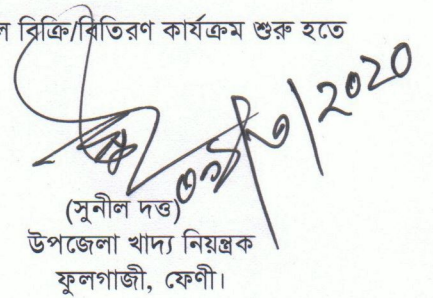 ল বিক্রি/বিতিরণ কার্যক্রম শুরু হতে
(সুনীল দত্ত)
উপজেলা খাদ্য নিয়ন্ত্রক
ফুলগাজী, ফেণী।